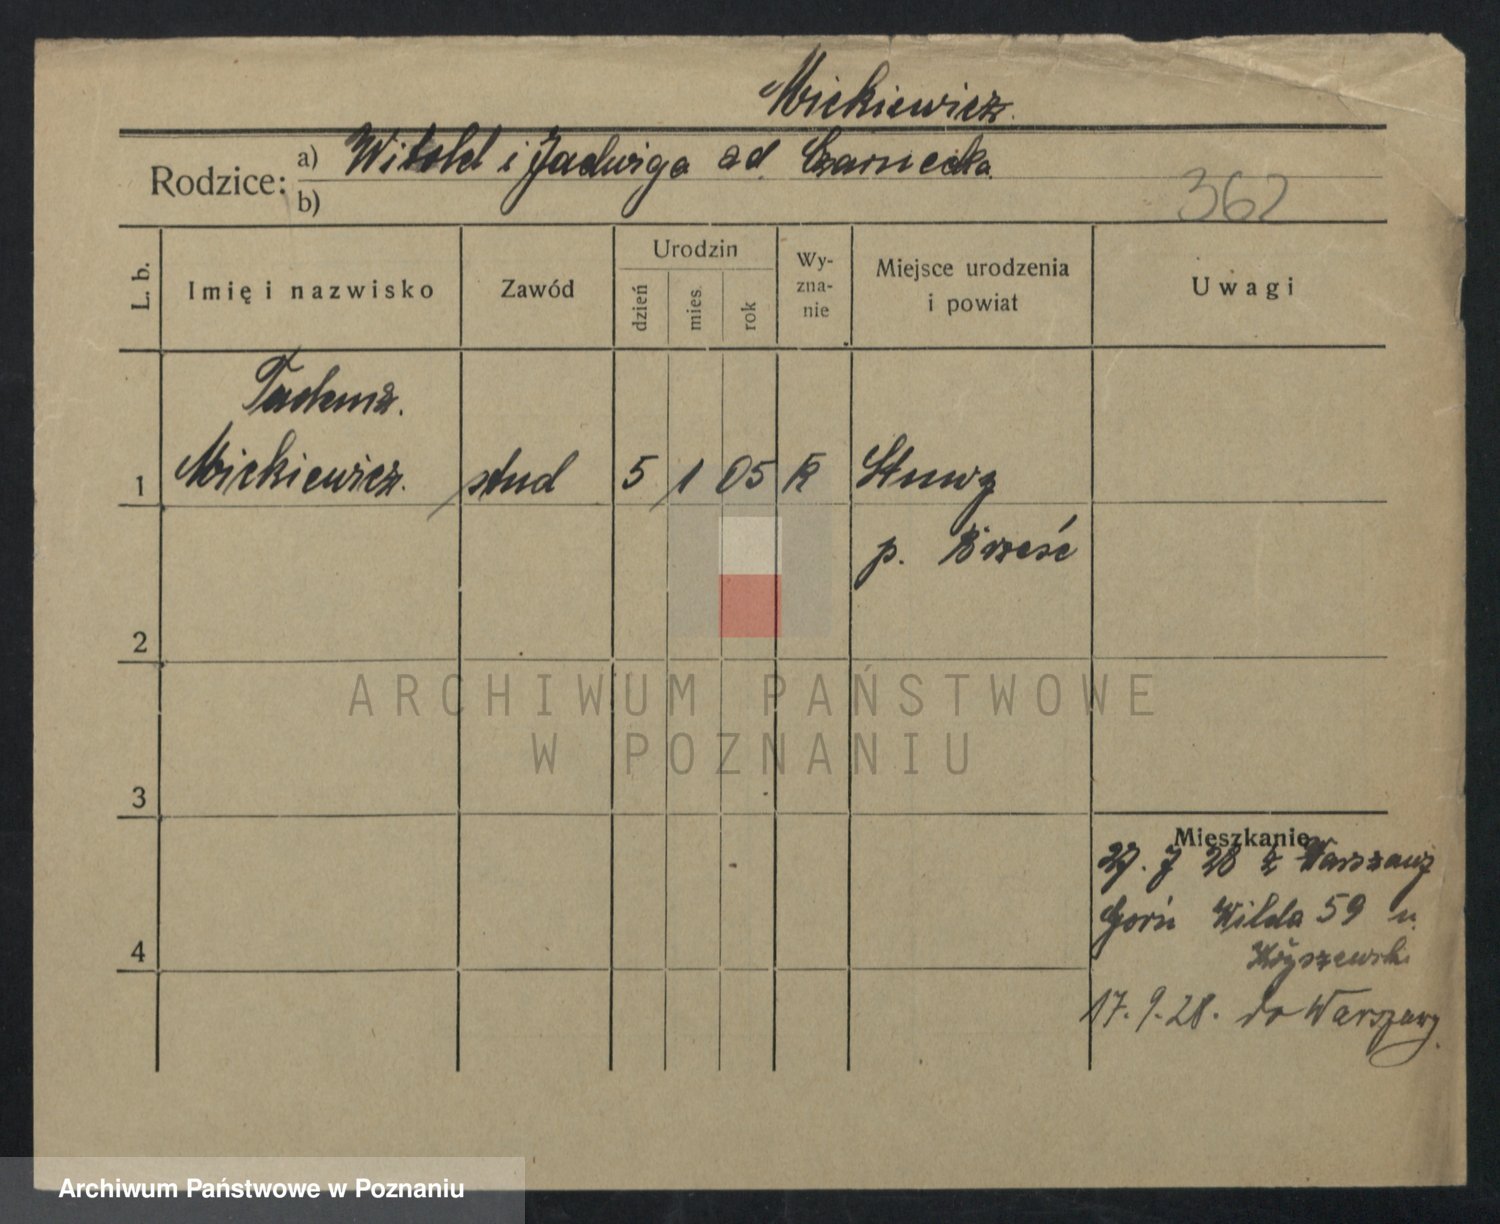 Mickiewicz.
Rodzice: a) Witold i Jadwiga ad. Czarnecka
b)
362
L. b.
Imię i nazwisko
Zawód
Urodzin
dzień
mies.
rok
Wy-
zna-
nie
Miejsce urodzenia
i powiat
Uwagi
Tadeusz.
1 Mickiewicz. stud 5 1 05 K
p. Brześć
2
3
4
Mieszkanie
27. 7 28 z Warszawy
Górn Wilda 59 u
17. 9. 28. do Warszawy.
ARCHIWUM PAŃSTWOWE
W POZNANIU
Archiwum Państwowe w Poznaniu